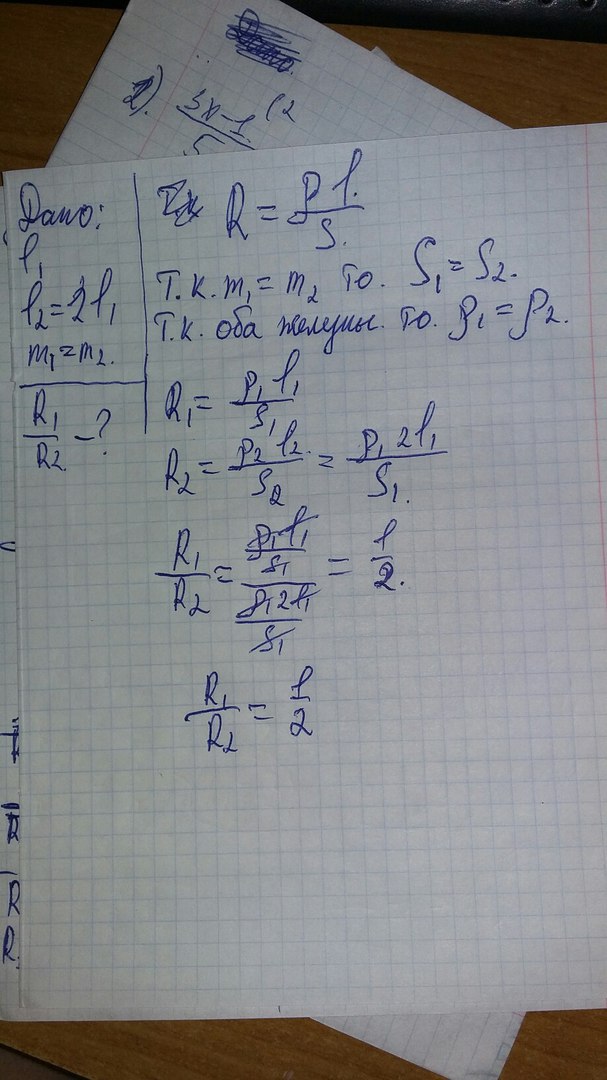 2). 3x-1 (2
5
Дано:
l₁
l₂=2l₁
m₁=m₂.
R₁/R₂ -?
R = ρl./S.
Т.к. m₁=m₂ то. S₁=S₂.
Т.к. оба то. ρ₁=ρ₂.
R₁= ρ₁l₁/S₁
R₂= ρ₂l₂/S₂ = ρ₁2l₁/S₁.
R₁/R₂ = (ρ₁l₁/S₁)/(ρ₁2l₁/S₁) = 1/2.
R₁/R₂ = 1/2
R
R
R.